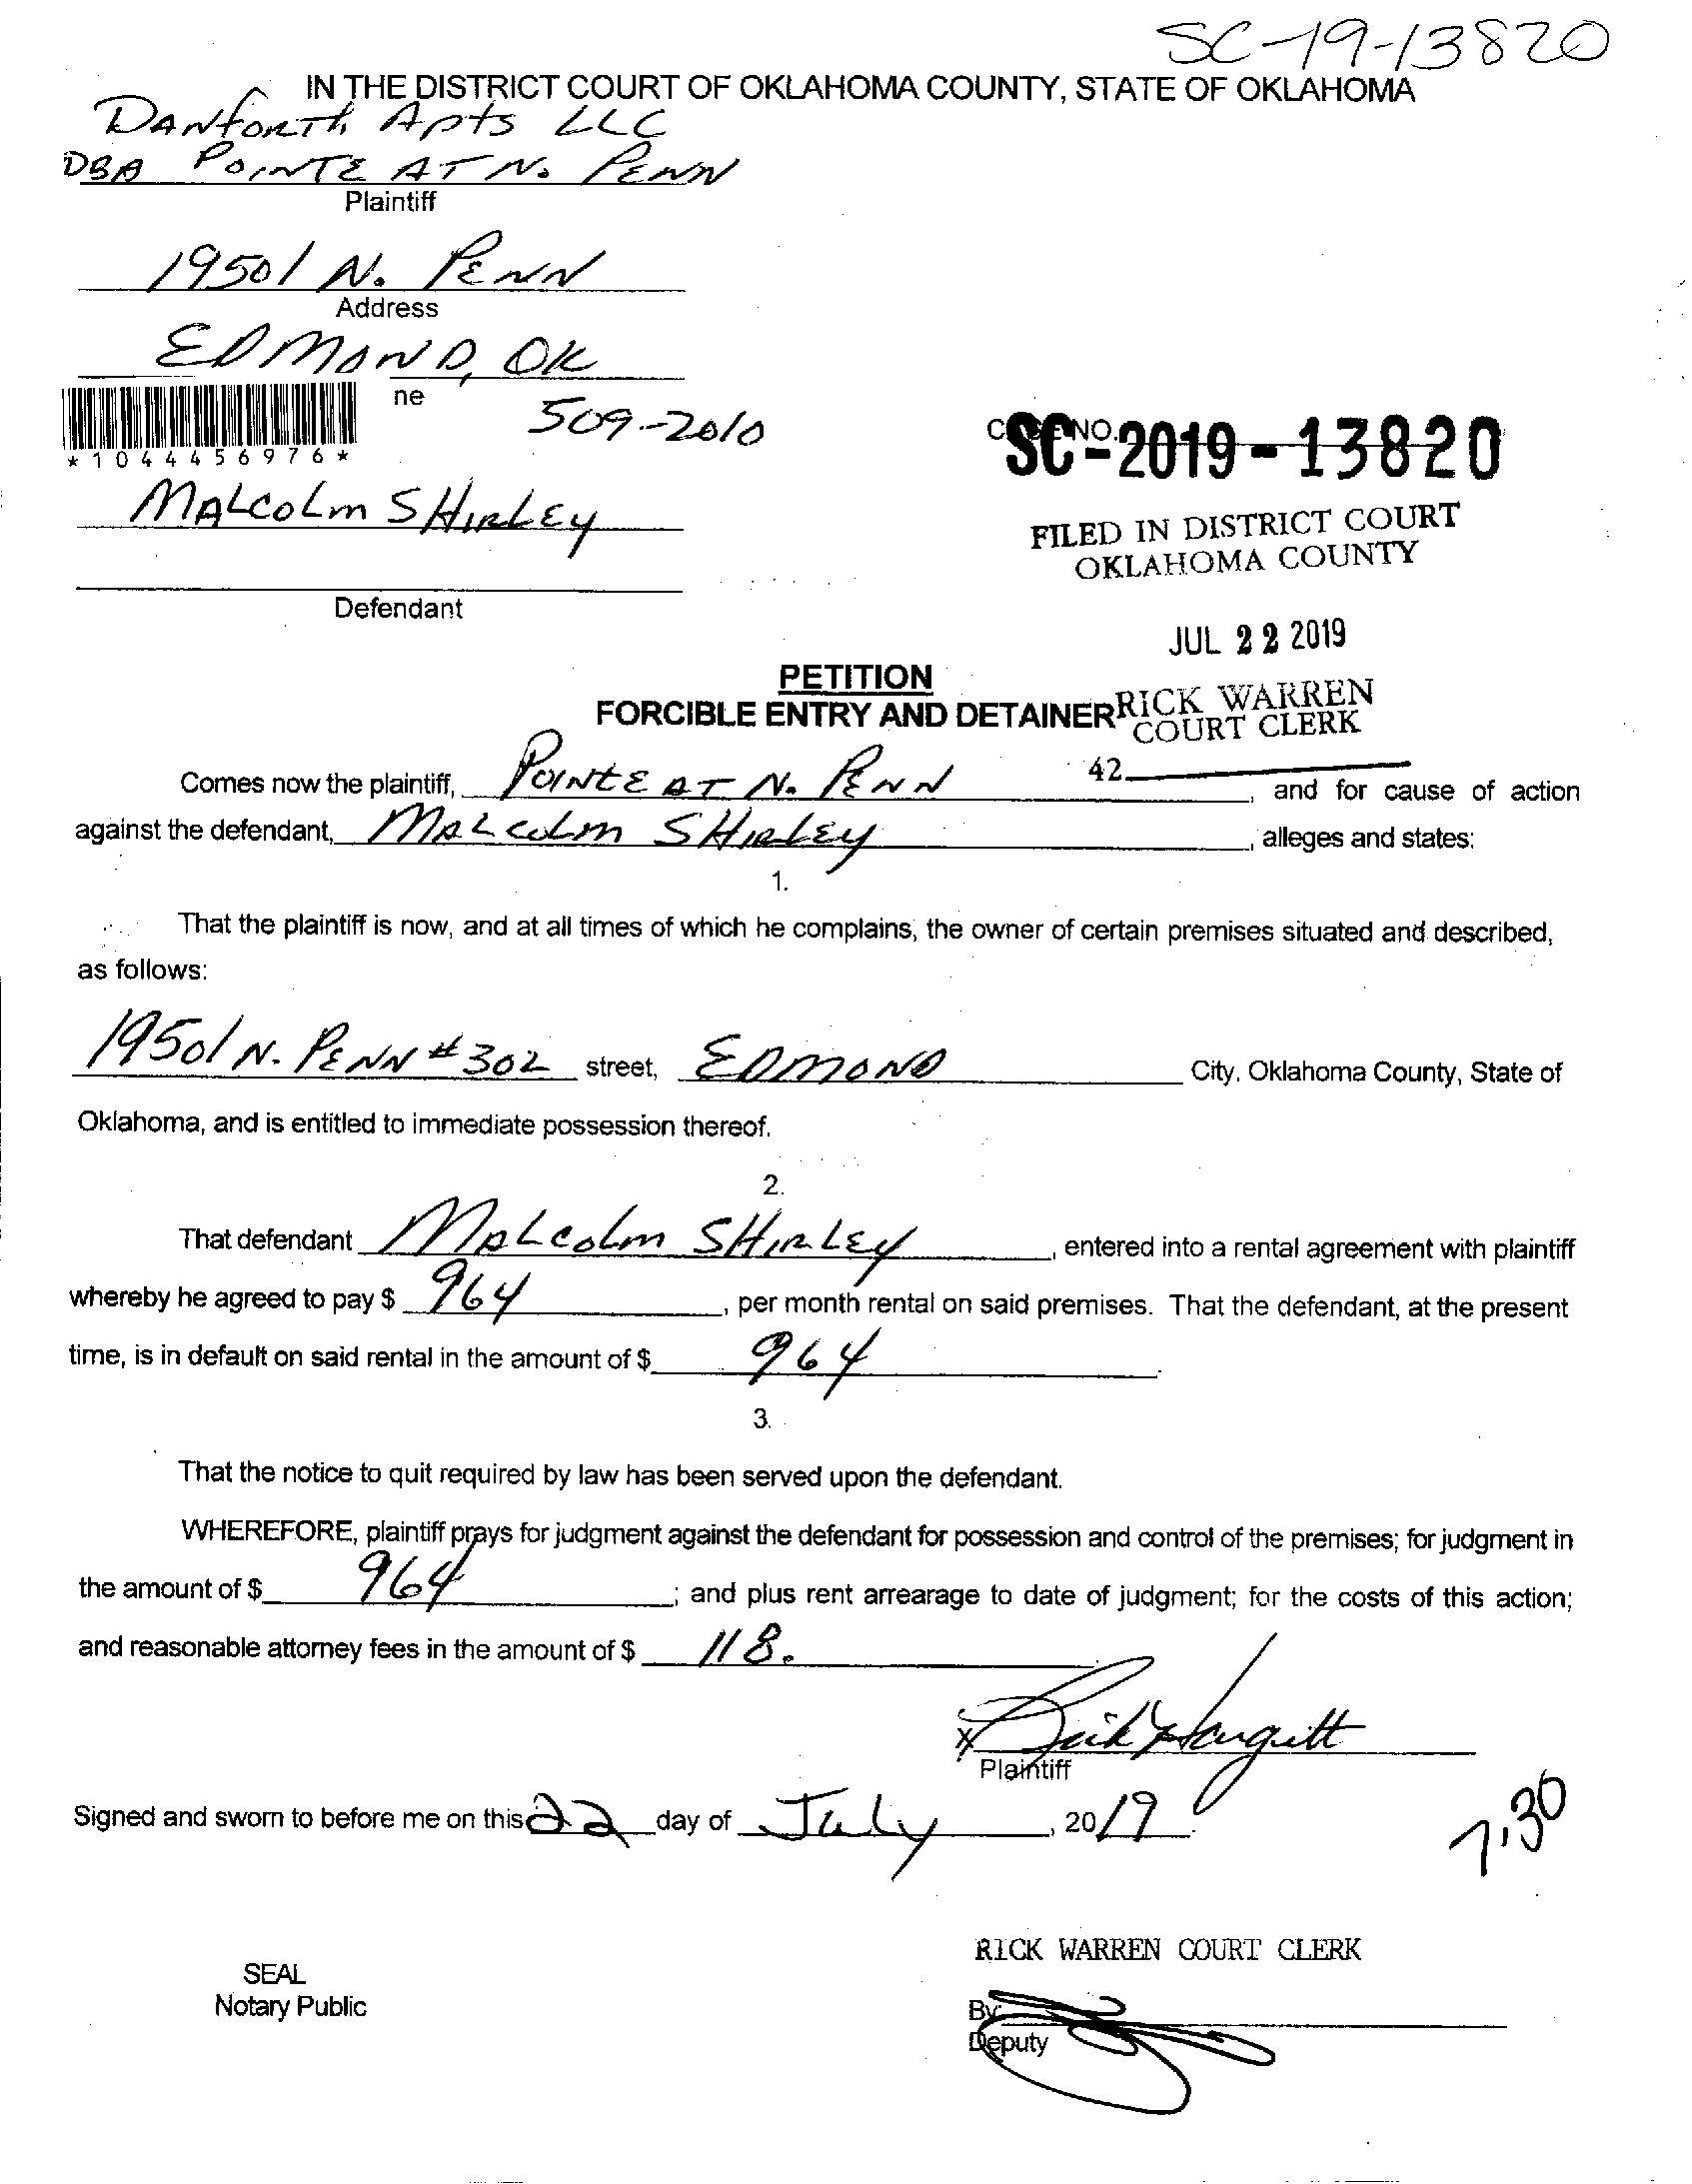 SC-19-13820
IN THE DISTRICT COURT OF OKLAHOMA COUNTY, STATE OF OKLAHOMA
DANFORTH Apts LLC
DBA POINTE AT N. PENN
Plaintiff
19501 N. PENN
Address
EDMOND, OK
ne
509-2010
*1044456976*
CASE NO.
SC-2019-13820
MALCOLM SHIRLEY
FILED IN DISTRICT COURT
OKLAHOMA COUNTY
Defendant
JUL 22 2019
PETITION
FORCIBLE ENTRY AND DETAINER
RICK WARREN
COURT CLERK
42
Comes now the plaintiff, POINTE AT N. PENN, and for cause of action
against the defendant, MALCOLM SHIRLEY, alleges and states:
1.
That the plaintiff is now, and at all times of which he complains, the owner of certain premises situated and described,
as follows:
19501 N. PENN #302 street, EDMOND City, Oklahoma County, State of
Oklahoma, and is entitled to immediate possession thereof.
2.
That defendant MALCOLM SHIRLEY, entered into a rental agreement with plaintiff
whereby he agreed to pay $ 964, per month rental on said premises. That the defendant, at the present
time, is in default on said rental in the amount of $ 964.
3.
That the notice to quit required by law has been served upon the defendant.
WHEREFORE, plaintiff prays for judgment against the defendant for possession and control of the premises; for judgment in
the amount of $ 964; and plus rent arrearage to date of judgment; for the costs of this action;
and reasonable attorney fees in the amount of $ 118.
X
Plaintiff
Signed and sworn to before me on this 22 day of July, 2019.
7.30
RICK WARREN COURT CLERK
SEAL
Notary Public
By:
Deputy